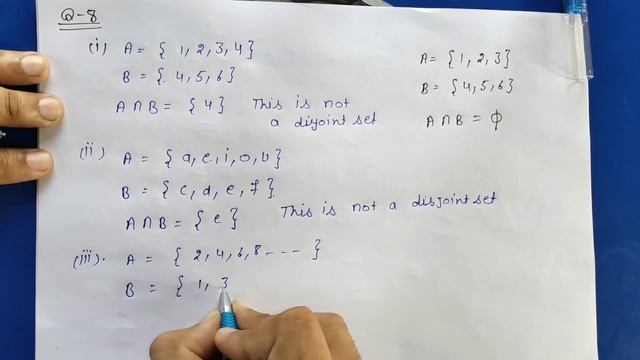 Q-8
(i) A = { 1, 2, 3, 4 }
B = { 4, 5, 6 }
A ∩ B = { 4 } This is not
a disjoint set
A = { 1, 2, 3 }
B = { 4, 5, 6 }
A ∩ B = ϕ
(ii) A = { a, e, i, o, u }
B = { c, d, e, f }
A ∩ B = { e } This is not a disjoint set
(iii). A = { 2, 4, 6, 8 - - - - }
B = { 1, 3